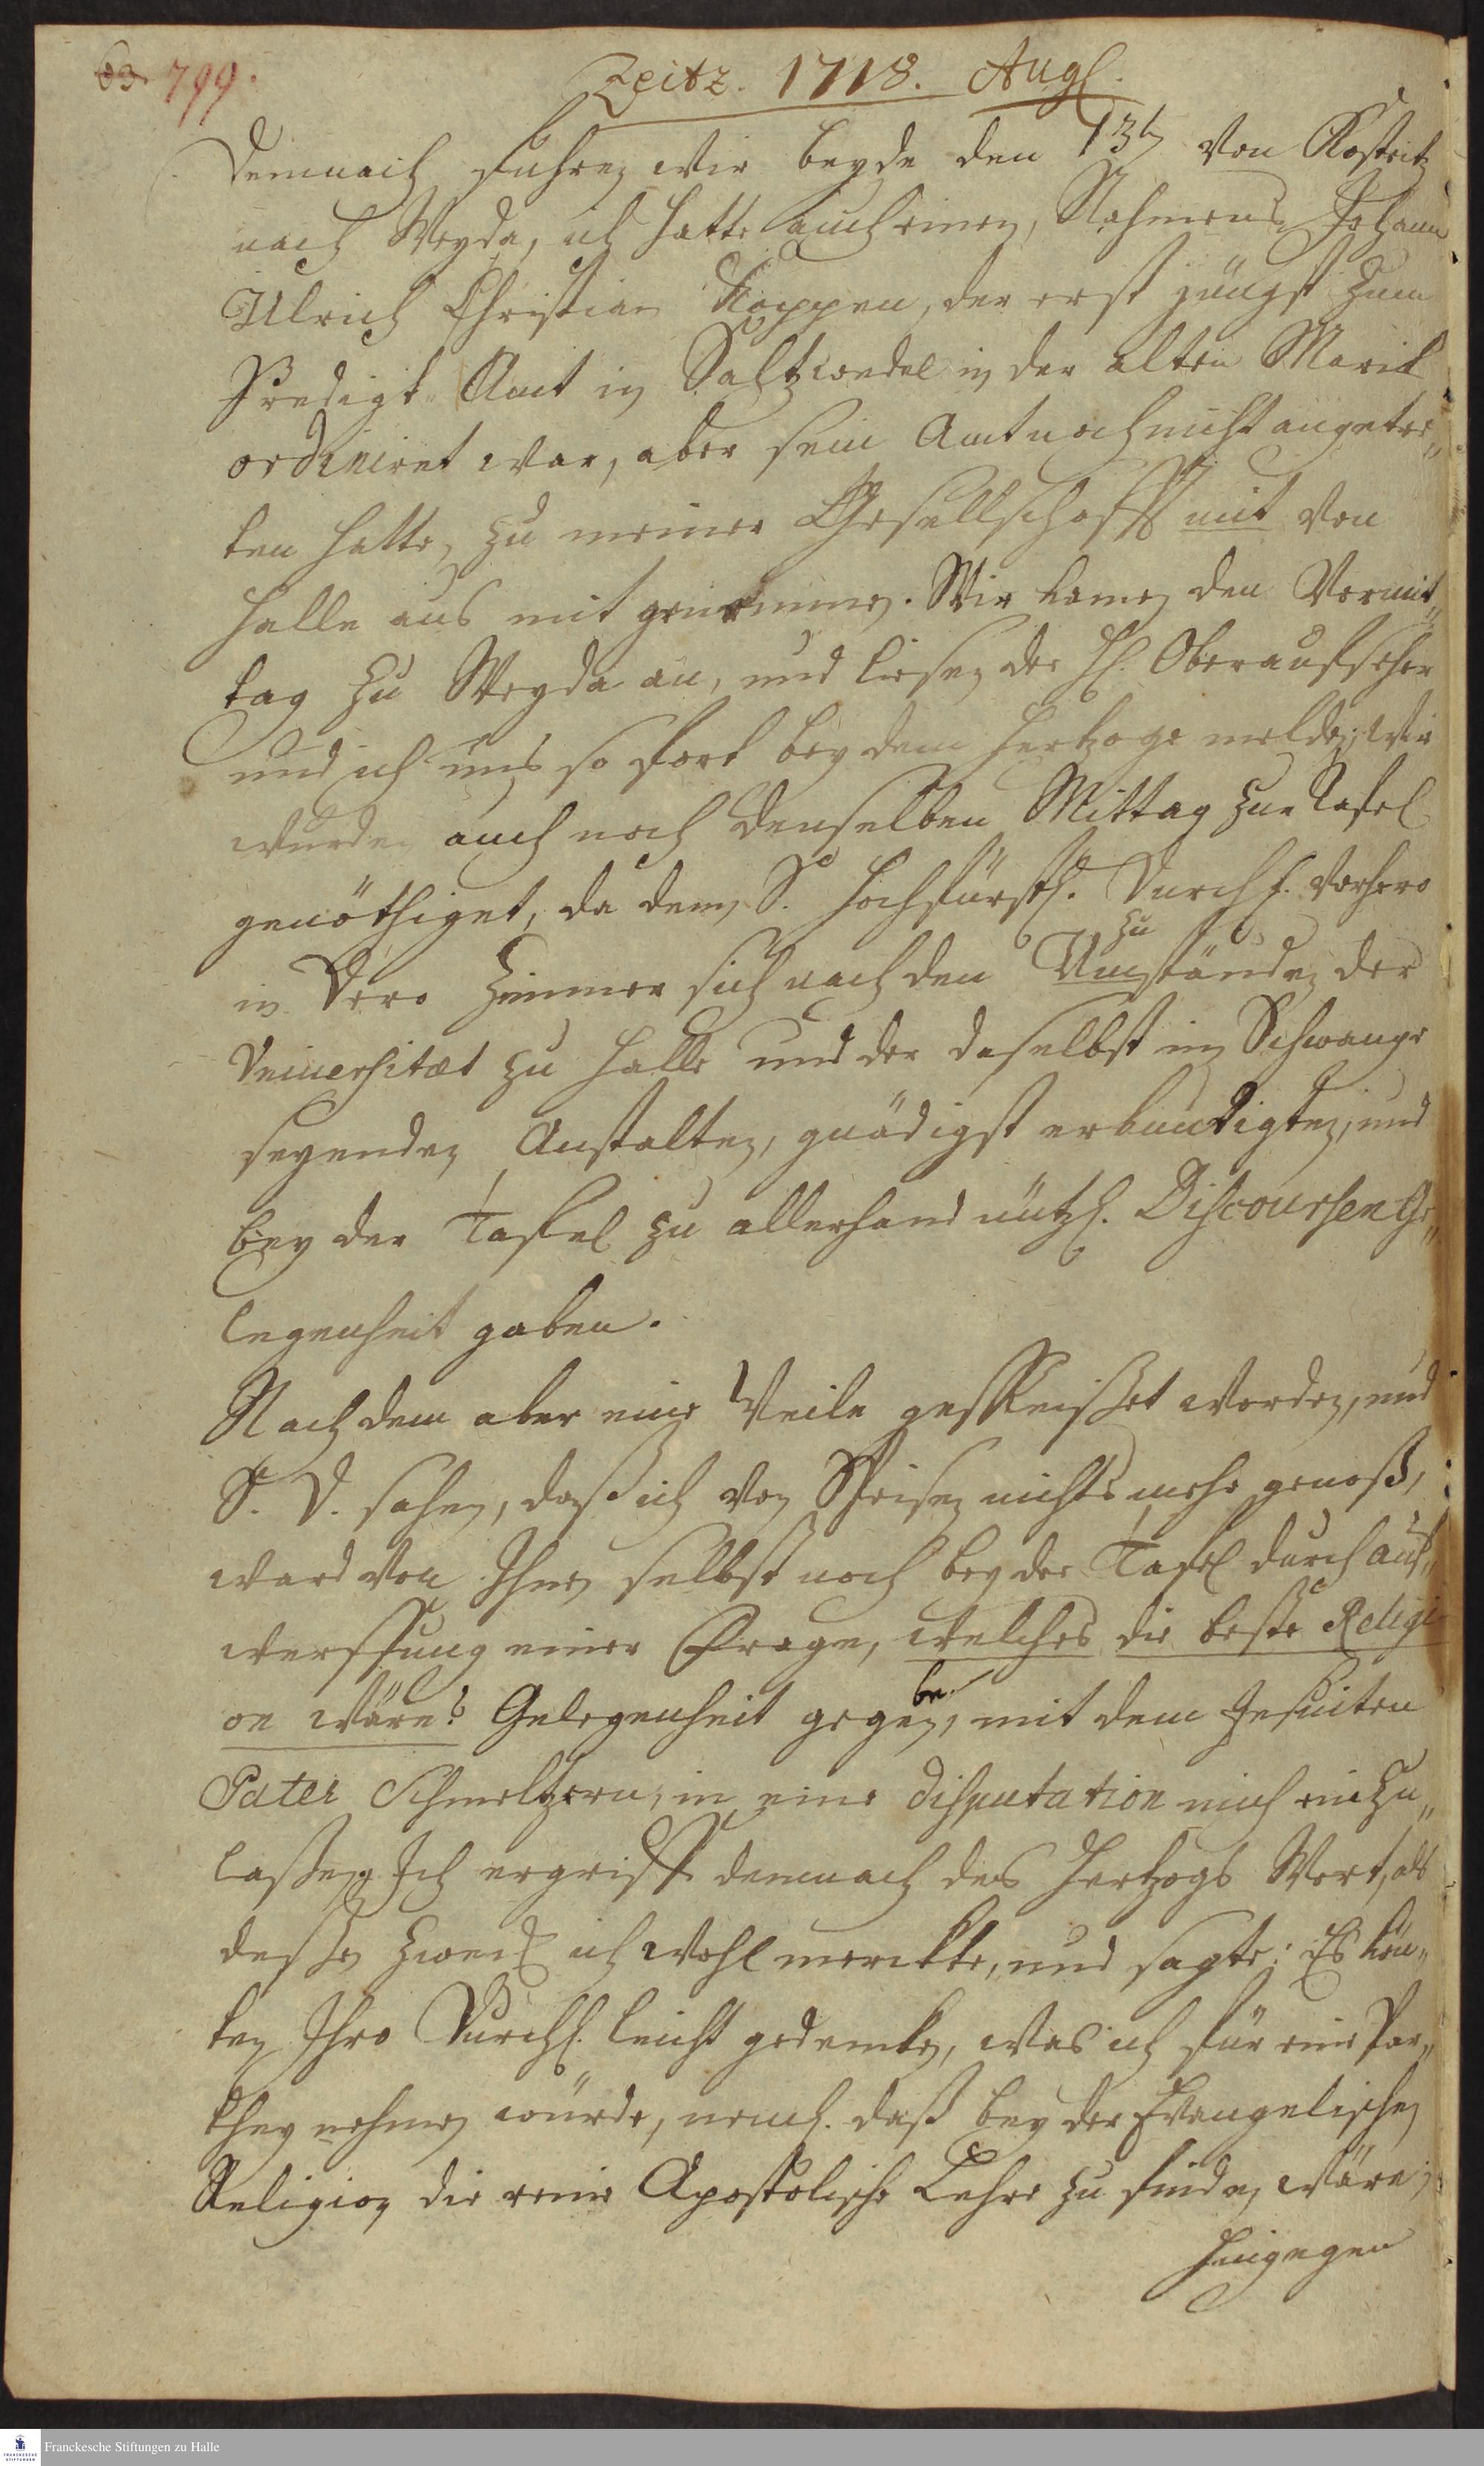 63. 799.
Zeitz. 1718. Aug.
Demnach fuhren wir beyde den 13ten von Köstritz
nach Weyda, ich hatte auch einen, Nahmens Johann
Ulrich Christian Köppen, der erst jüngst zum
Predigt-Amt in Saltzwedel in der alten Marck
ordiniret war, aber sein Amt noch nicht angetre„
ten hatte, zu meiner Gesellschafft mit von
Halle aus mit genommen. Wir kamen den Vormit„
tag zu Weyda an, und liesen der H. Oberaufseher
und ich uns so fort bey dem Hertzoge melden; wir
wurden auch noch denselben Mittag zur Tafel
genöthiget, da denn S. Hochfürstl. Durchl. vorhero
in Dero Zimmer sich nach den Umständen der
zu
Universitæt zu Halle und der daselbst im Schwange
seyenden Anstalten, gnädigst erkundigten, und
bey der Tafel zu allerhand nützl. Discoursen Ge„
legenheit gaben.
Nachdem aber eine Weile gespeißet worden, und
S. D. sahen, daß ich von Speisen nichts mehr genoß,
ward von Ihnen selbst noch bey der Tafel durch auf„
werffung einer Frage, welches die beste Religi
on wäre? Gelegenheit gegeben, mit dem Jesuiten
Pater Schmeltzern, in eine disputation mich einzu„
laßen. Ich ergriff demnach des Hertzogs Wort, als
deßen Zweck ich wohl merckte, und sagte: Es kön„
ten Ihro Durchl. leicht gedencken, was ich für eine Par„
they nehmen würde, neml. daß bey der Evangelischen
Religion die reine Apostolische Lehre zu finden wäre;
hingegen
Franckesche Stiftungen zu Halle